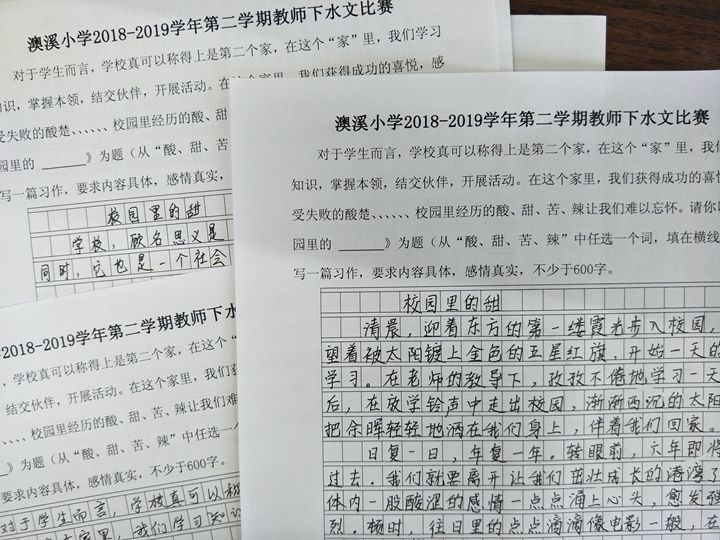 澳溪小学2018-2019学年第二学期教师下水文比赛
对于学生而言，学校真可以称得上是第二个家，在这个“家”里，我们学习
知识，掌握本领，结交伙伴，开展活动。在这个家里，我们获得成功的喜悦，感
受失败的酸楚、、、、、、校园里经历的酸、甜、
园里的 ______》为题（从“酸、甜、苦
写一篇习作，要求内容具体，感情真实，
校园里的甜
学校，顾名思义是
同时，它也是一个社会
澳溪小学2018-2019学年第二学期教师下水文比赛
对于学生而言，学校真可以称得上是第二个家，在这个“家”里，我们
知识，掌握本领，结交伙伴，开展活动。在这个家里，我们获得成功的喜
受失败的酸楚、、、、、、校园里经历的酸、甜、苦、辣让我们难以忘怀。请你以
园里的 ______》为题（从“酸、甜、苦、辣”中任选一个词，填在横线
写一篇习作，要求内容具体，感情真实，不少于600字。
校园里的甜
清晨，迎着东方的第一缕霞光步入校园，
望着被太阳镀上金色的五星红旗，开始一天的
学习。在老师的教导下，孜孜不倦地学习一天
后，在放学铃声中走出校园，渐渐西沉的太阳
把余晖轻轻地洒在我们身上，伴着我们回家。
日复一日，年复一年。转眼前，六年即将
过去。我们就要离开让我们茁壮成长的港湾了
体内一股酸涩的感情一点点涌上心头，愈发强
烈。杨时，往日里的点点滴滴像电影一般，在
2018-2019学年第二学期教师下水文
，学校真可以称得上是第二个家，在这个“
结交伙伴，开展活动。在这个家里，我们
、、、、、校园里经历的酸、甜、苦、辣让我们难
》为题（从“酸、甜、苦、辣”中任选一
要求内容具体，感情真实，不少于600字。
对于学生而言，学校真可以称
家里，我们学习知识